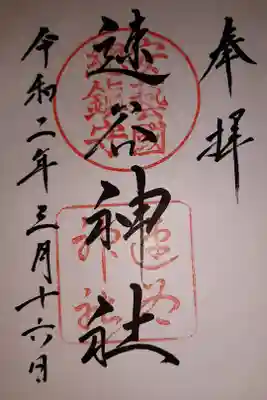 奉拝
速谷神社
令和二年三月十六日
安藝國
総鎮守
速谷
神社